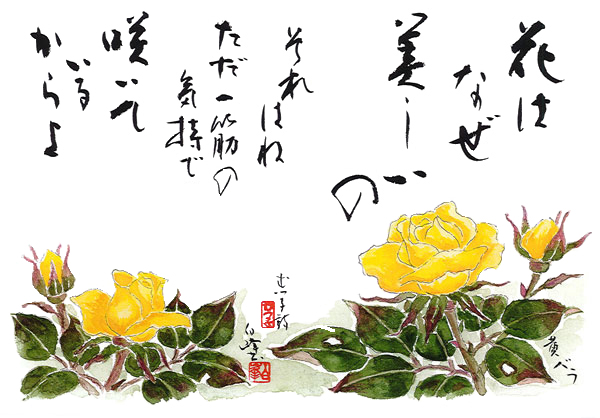 花は
なぜ
美しい
の
それはね
ただ一筋の
気持で
咲いて
いる
からよ
黄バラ